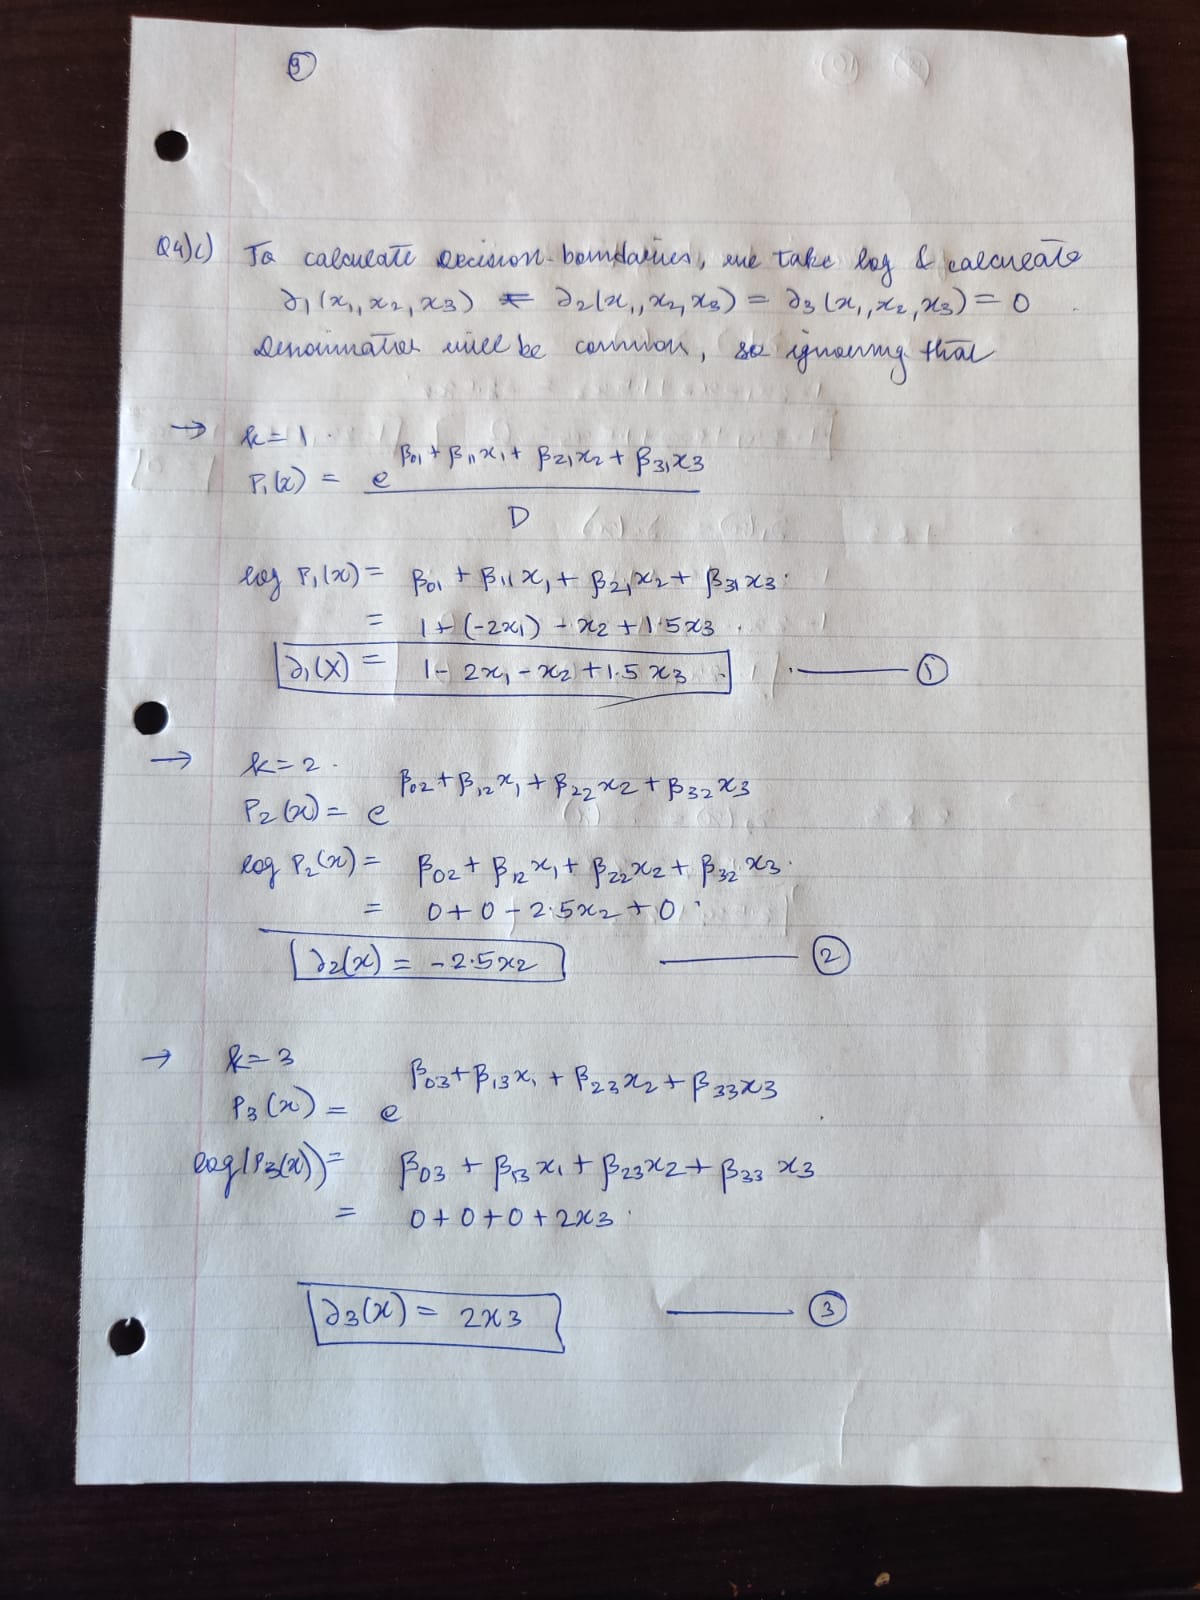 9
Q4)c) To calculate decision boundaries, we take log & calculate
∂1(x1, x2, x3) = ∂2(x1, x2, x3) = ∂3(x1, x2, x3) = 0
Denominator will be common, so ignoring that
→ k=1.
P1(x) = e^(β01 + β11x1 + β21x2 + β31x3)
D
log P1(x) = β01 + β11x1 + β21x2 + β31x3.
= 1+(-2x1) - x2 + 1.5x3
∂1(x) = 1- 2x1 - x2 + 1.5x3 — ①
→ k=2.
P2(x) = e^(β02 + β12x1 + β22x2 + β32x3)
log P2(x) = β02 + β12x1 + β22x2 + β32x3.
= 0+0-2.5x2+0
∂2(x) = -2.5x2 — ②
→ k=3
P3(x) = e^(β03 + β13x1 + β23x2 + β33x3)
log(P3(x)) = β03 + β13x1 + β23x2 + β33x3
= 0+0+0+2x3
∂3(x) = 2x3 — ③